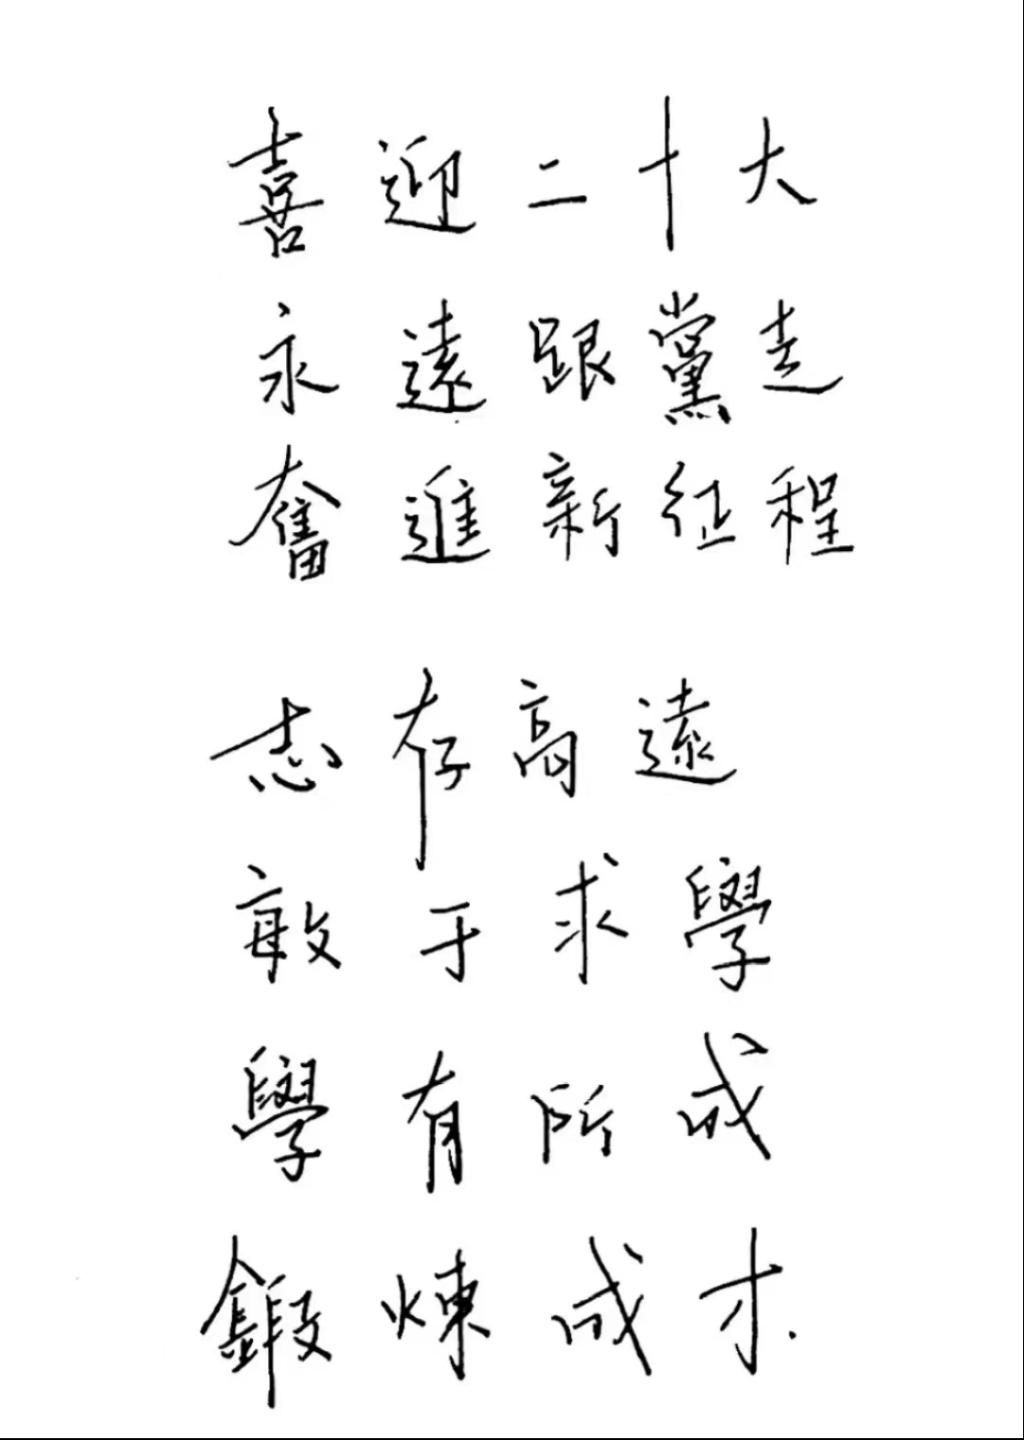 喜迎二十大
永遠跟黨走
奮進新征程
志存高遠
敢于求學
學有所成
鍛煉成才.